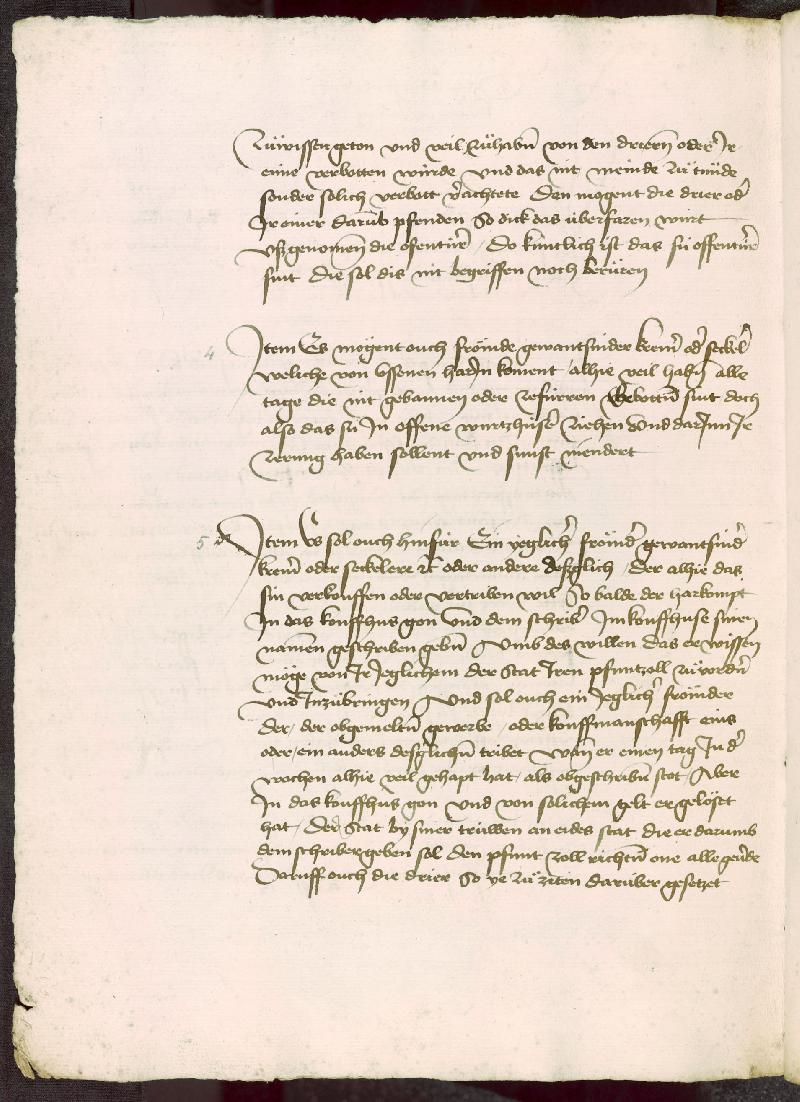 zü wissen geton vnd veil zü haben von den drien oder Ir
eine verbotten würde vnd das nit meinde zü tünde
sonder solich verbott v̾achtete Den mögent die drier od̾
Ir einer darūb pfenden So dick das überfaren wurt
vßgenomen̄ die ofentür̾ / Do küntlich ist das sü offentür̾
sint die sol dis nit begriffen noch berüren
4 Item Es mögent ouch frömde gewantsnider krem̾ od̾ seckel̾
weliche von vssenen har In koment / alhie veil habn̄ alle
tage die nit gebannen oder zefürren gebottn̄ sint doch
also das sü In offene wurtzhüser ziehen vnd dar Inn Ir
zerung haben sollent vnd sunst niendert
5 Item Es sol ouch hinfür Ein yeglich̾ frömd̾ gewantsnid̾
krem̾ oder seckelere ꝛc̄ oder andere deßglich / der alhie das
sin verkouffen oder vertriben wil So balde der harkompt
In das kouffhus gon vnd dem schrib̾ Im kouffhuse sinen
namen geschriben gebn̄ Vmb des willen das er wissen
möge von Ir Jeglichem der Stat Iren pfuntzoll zü vordn̄
vnd Inzübringen Vnd sol ouch ein Jeglich̾ frömder
der / der obgemeltn̄ gewerbe / oder kouffmanschafft eins
oder / ein anders deßglichn̄ tribet wan̄ er einen tag In d̾
wochen alhie veil gehapt hat / als obgeschribn̄ stot Aber
In das kouffhus gon vnd von solichem gelt er gelöset
hat / Der Stat by siner trüwen an eides stat die er darumb
dem schriber geben sol den pfunt zoll richtn̄ one alle gev̾de
Daruff ouch die drier So ye zü ziten darüber gesetzet